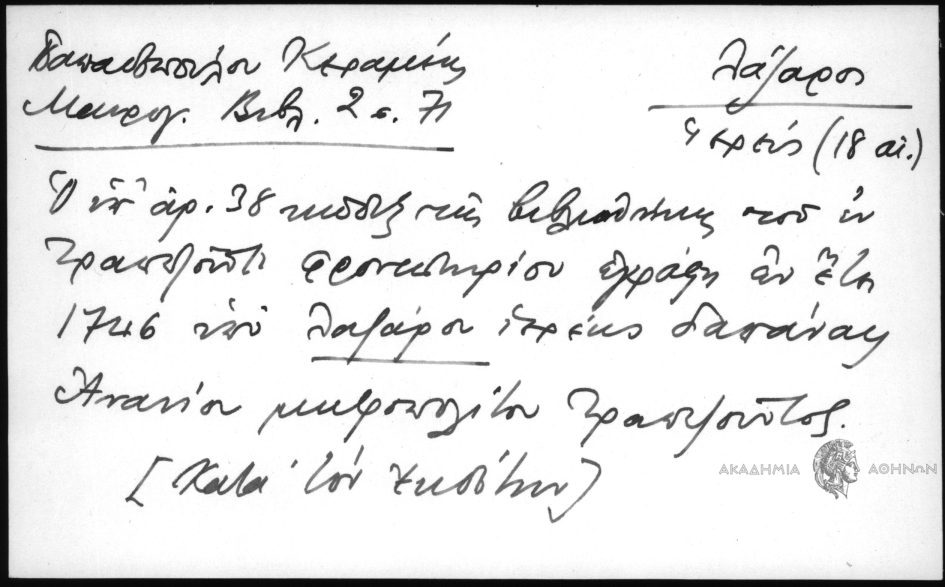 Παπαδοπούλου Κεραμέως
Μαυρογ. Βιβλ. 2 σ. 71
Λάζαρος
ἱερεύς (18 αἰ.)
Ὁ ὑπ' ἀρ. 38 κῶδιξ τῆς βιβλιοθήκης τοῦ ἐν
Τραπεζοῦντι φροντιστηρίου ἐγράφη ἐν ἔτει
1746 ὑπὸ Λαζάρου ἱερέως δαπάναις
Ἀνανίου μητροπολίτου Τραπεζοῦντος.
[Κατὰ τὸν ἐκδότην]
ΑΚΑΔΗΜΙΑ ΑΘΗΝΩΝ